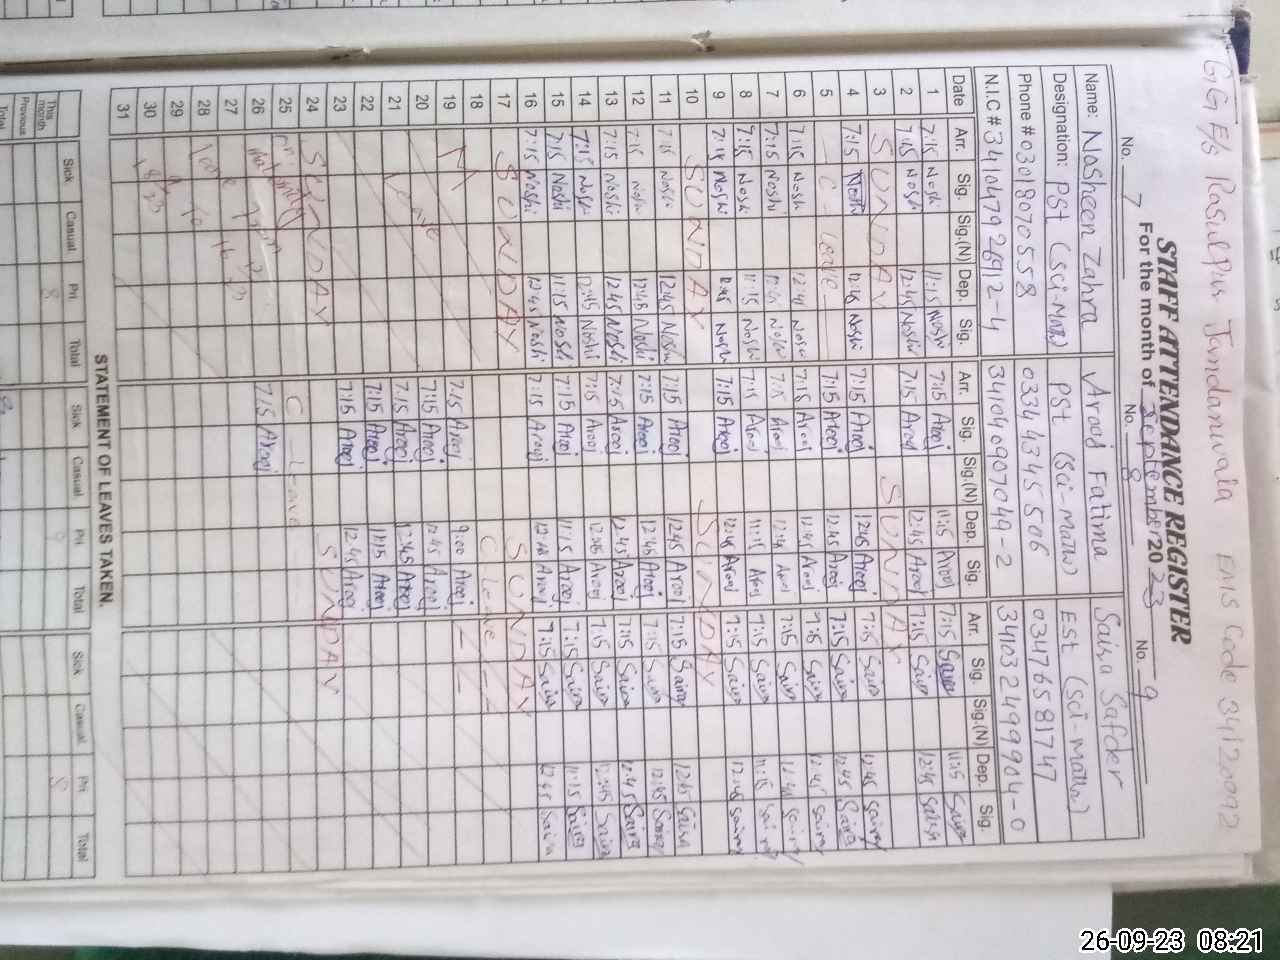 GGE/S Rasulpur Jandanwala EMIS Code 34120092
STAFF ATTENDANCE REGISTER
For the month of September 2023
No. 7 No. 8 No. 9
Name: Nosheen Zahra Arooj Fatima Saira Safder
Designation: PSt (Sci-Math) PSt (Sci-math) ESt (Sci-math)
Phone # 03018070558 03344345506 03476581747
N.I.C # 3410479 2 3410409070 49-2 3410324999 04-0
Date Arr. Sig. Sig.(N) Dep. Sig. Arr. Sig. Sig.(N) Dep. Sig. Arr. Sig. Sig.(N) Dep. Sig.
1 7:15 Noshi 11:15 Noshi 7:15 Arooj 11:15 Arooj 7:15 Saira 11:15 Saira
2 7:15 Noshi 12:45 Noshi 7:15 Arooj 12:45 Arooj 7:15 Saira 12:45 Saira
3 SUNDAY SUNDAY
4 7:15 Noshi 12:45 Noshi 7:15 Arooj 12:45 Arooj 7:15 Saira 12:45 Saira
5 C- Leave 7:15 Arooj 12:45 Arooj 7:15 Saira 12:45 Saira
6 7:15 Noshi 12:45 Noshi 7:15 Arooj 12:45 Arooj 7:15 Saira 12:45 Saira
7 7:15 Noshi 12:45 Noshi 7:15 Arooj 12:45 Arooj 7:15 Saira 12:45 Saira
8 7:15 Noshi 11:15 Noshi 7:15 Arooj 11:15 Arooj 7:15 Saira 11:15 Saira
9 7:15 Noshi 12:45 Noshi 7:15 Arooj 12:45 Arooj 7:15 Saira 12:45 Saira
10 SUNDAY SUNDAY
11 7:15 Noshi 12:45 Noshi 7:15 Arooj 12:45 Arooj 7:15 Saira 12:45 Saira
12 7:15 Noshi 12:45 Noshi 7:15 Arooj 12:45 Arooj 7:15 Saira 12:45 Saira
13 7:15 Noshi 12:45 Noshi 7:15 Arooj 12:45 Arooj 7:15 Saira 12:45 Saira
14 7:15 Noshi 12:45 Noshi 7:15 Arooj 12:45 Arooj 7:15 Saira 12:45 Saira
15 7:15 Noshi 11:15 Noshi 7:15 Arooj 11:15 Arooj 7:15 Saira 11:15 Saira
16 7:15 Noshi 12:45 Noshi 7:15 Arooj 12:45 Arooj 7:15 Saira 12:45 Saira
17 SUNDAY SUNDAY
18 C Leave
19 7:15 Arooj 9:00 Arooj
20 7:15 Arooj 12:45 Arooj
21 Leave 7:15 Arooj 12:45 Arooj
22 7:15 Arooj 11:15 Arooj
23 7:15 Arooj 12:45 Arooj
24 SUNDAY SUNDAY
25 C Leave
26 maternity 7:15 Arooj
27 from
28 Leave to
29
30
31
STATEMENT OF LEAVES TAKEN.
Sick Casual Pri Total Sick Casual Pri Total Sick Casual Pri Total
This month 8 9 8
Previous
Total
26-09-23 08:21